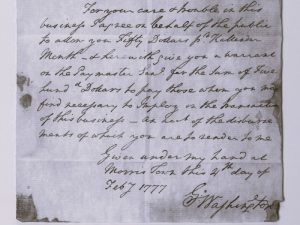 For your care & trouble in this
business I agree on behalf of the public
to allow you Fifty Dollars pr Kallendar
Month — & herewith give you a warrant
on the Paymaster Genl for the sum of Five
hund d Dollars to pay those whom you may
find necessary to Imploy in the transaction
of this business — an Acct of the disburse
ments of which you are to render to me
Given under my hand at
Morris Town this 4th day of
Feby 1777
Go Washington